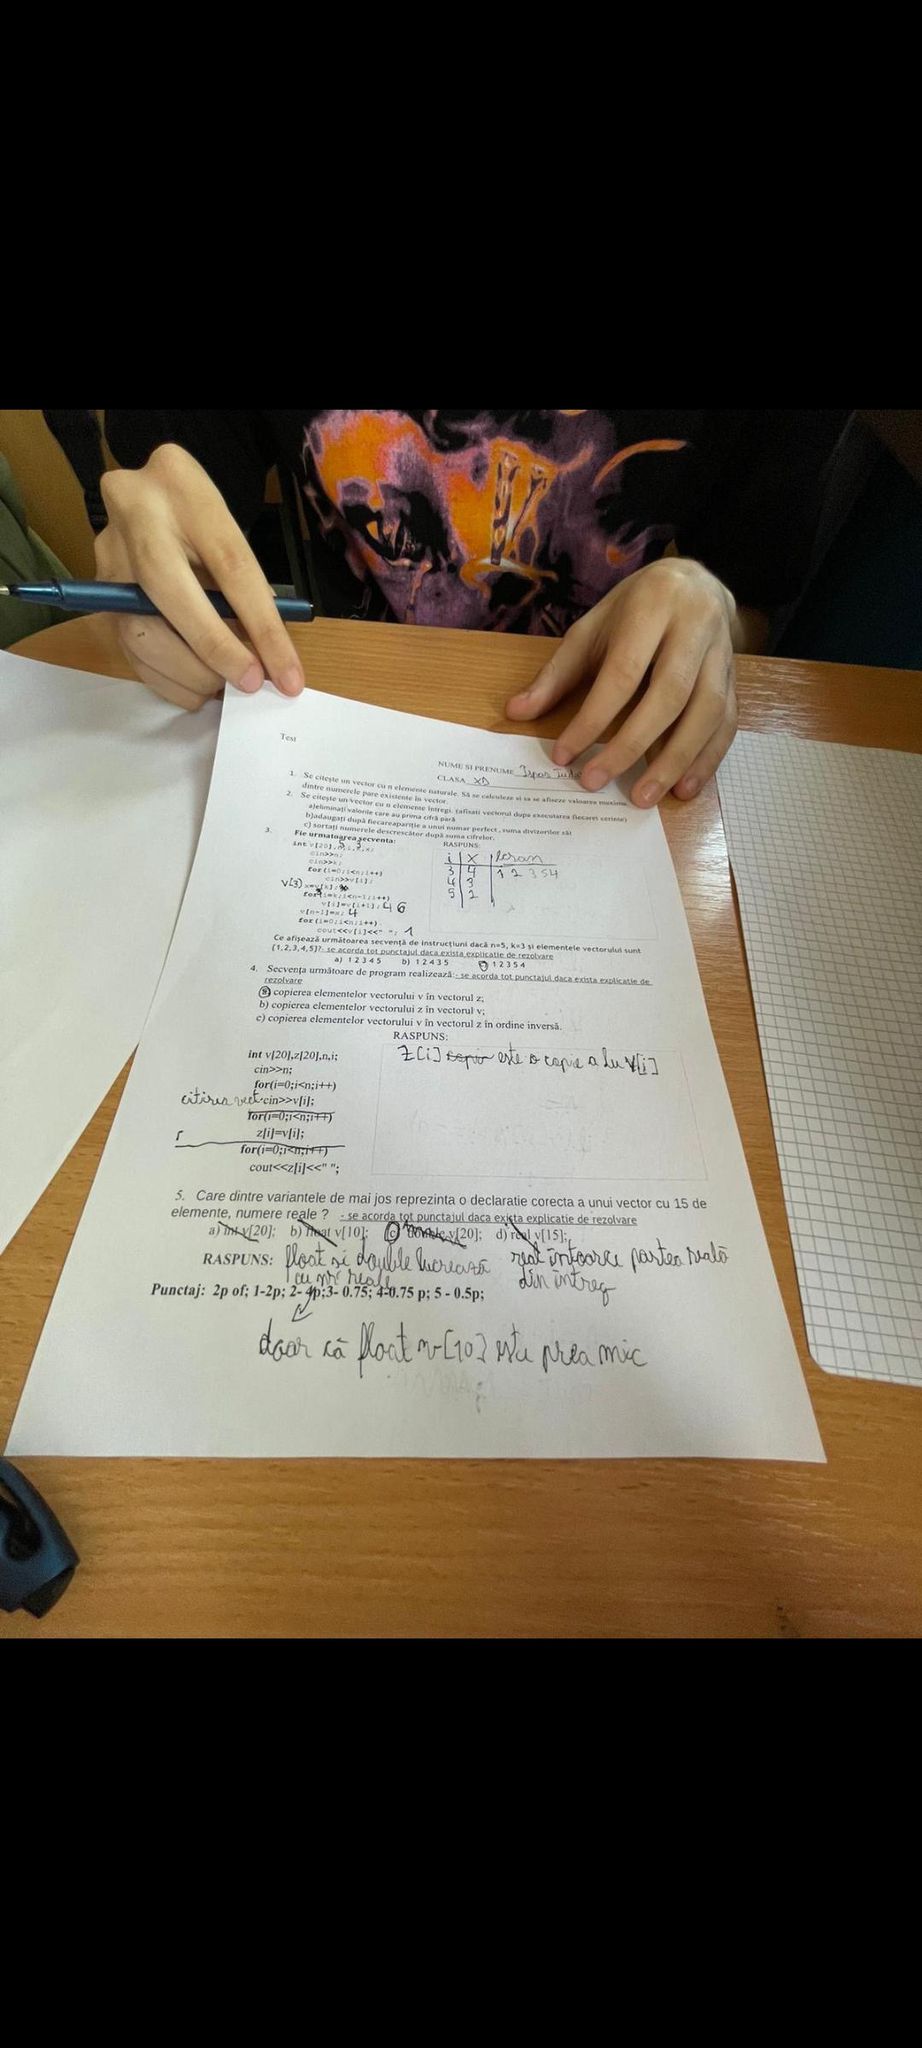 Test
NUME SI PRENUME
CLASA XD
1. Se citește un vector cu n elemente naturale. Să se calculeze si sa se afiseze valoarea maxima
dintre numerele pare existente in vector.
2. Se citește un vector cu n elemente intregi. (afisati vectorul dupa executarea fiecarei cerinte)
a)eliminați valorile care au prima cifră pară
b)adaugati după fiecareapariție a unui numar perfect , suma divizorilor săi
c) sortați numerele descrescător după suma cifrelor.
3. Fie urmatoarea secventa:
RASPUNS:
cin>>n;
cin>>k;
for (i=0;i<n;i++)
cin>>v[i];
v[3] x=v[k];
for(i=k;i<n-1;i++)
v[i]=v[i+1]; 46
v[n-1]=x; 4
for (i=0;i<n;i++)
cout<<v[i]<<" "; 1
i x
3 4 1 2 3 5 4
4 3
5
Ce afișează următoarea secvență de instrucțiuni dacă n=5, k=3 și elementele vectorului sunt
(1,2,3,4,5)?- se acorda tot punctajul daca exista explicatie de rezolvare
a) 1 2 3 4 5 b) 1 2 4 3 5 1 2 3 5 4
4. Secvența următoare de program realizează:- se acorda tot punctajul daca exista explicatie de
rezolvare
a) copierea elementelor vectorului v în vectorul z;
b) copierea elementelor vectorului z în vectorul v;
c) copierea elementelor vectorului v în vectorul z în ordine inversă.
RASPUNS:
z[i] este o copie a lu v[i]
int v[20],z[20],n,i;
cin>>n;
for(i=0;i<n;i++)
citirea vect cin>>v[i];
for(i=0;i<n;i++)
z[i]=v[i];
for(i=0;i<n;i++)
cout<<z[i]<<" ";
5. Care dintre variantele de mai jos reprezinta o declaratie corecta a unui vector cu 15 de
elemente, numere reale ? - se acorda tot punctajul daca exista explicatie de rezolvare
a) int v[20]; b) float v[10]; c) double v[20]; d) real v[15];
RASPUNS: float si double lucrează real întoarce partea reală
cu nr reale din întreg
Punctaj: 2p of; 1-2p; 2- 4p;3- 0.75; 4-0.75 p; 5 - 0.5p;
doar că float v[10] este prea mic